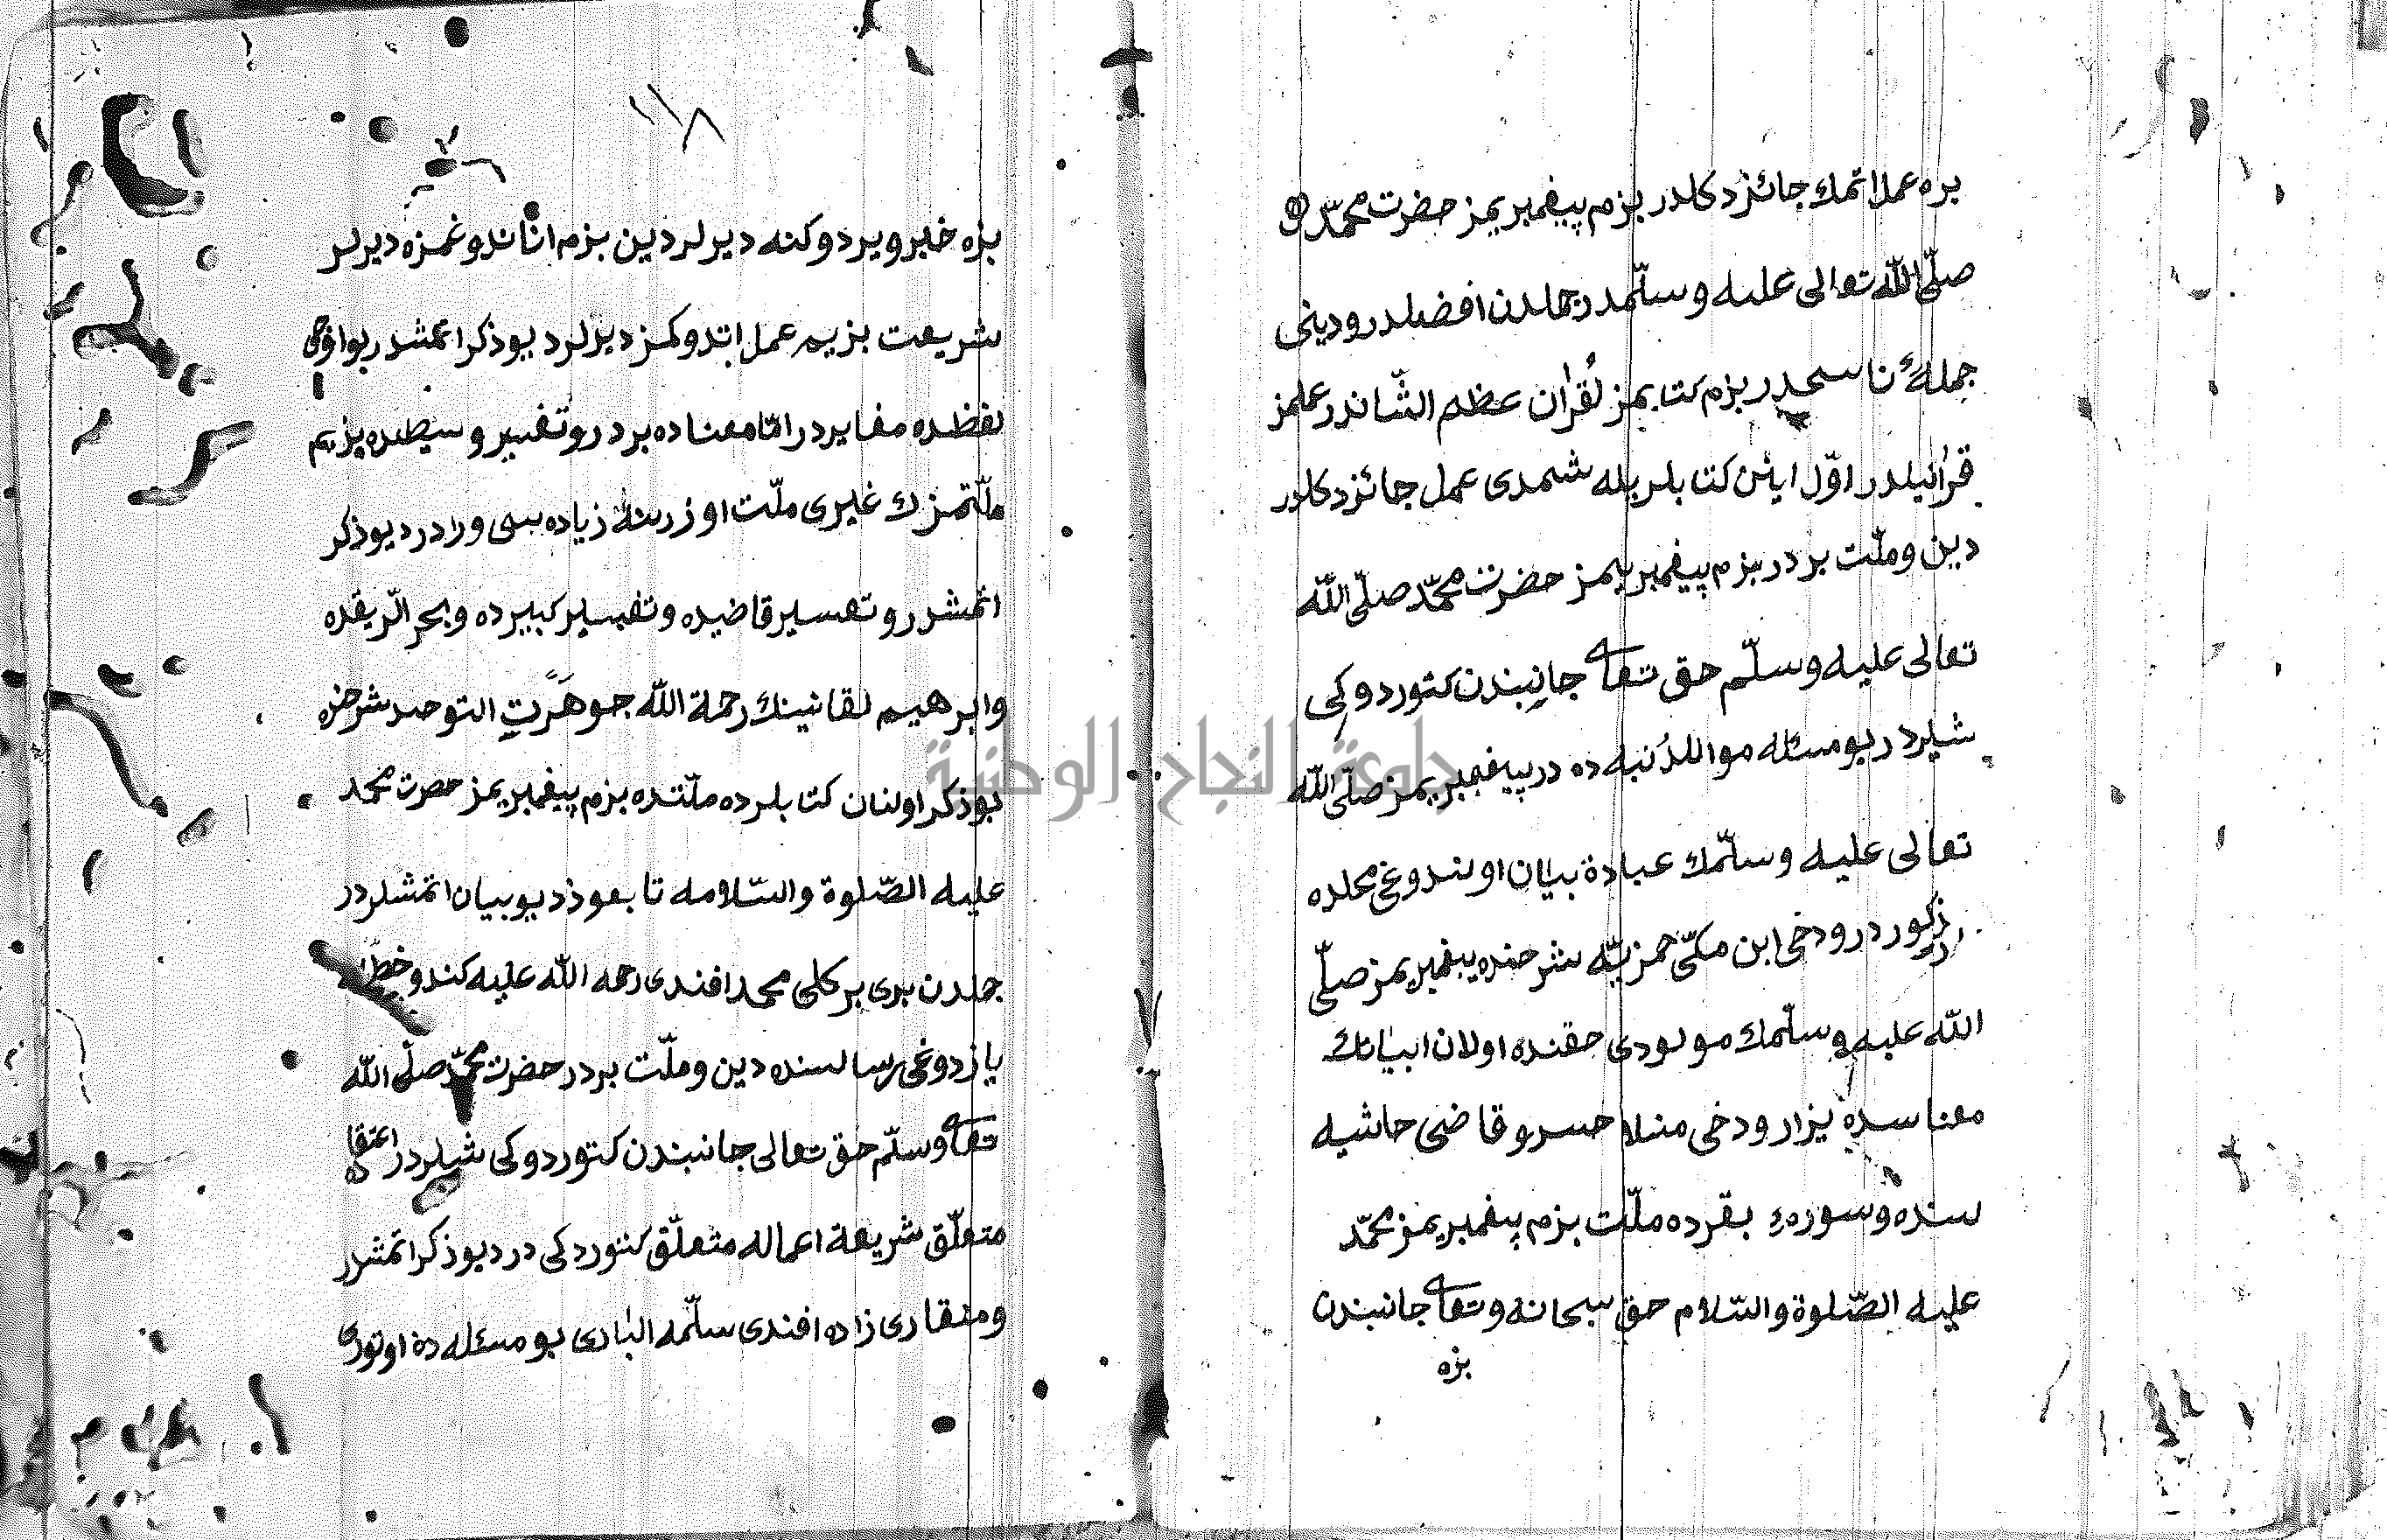 بره عمل اتمك جائز دكلدر بزم پيغمبريمز حضرت محمّد
صلّى اللّه تعالى عليه وسلّمدر جملدن افضلدر ودينى
جملهٔ ناسخدر بزم كتابمز قرآن عظم الشّاندر عملمز
قرآنيلدر اوّل اينن كتابلر بله شمدى عمل جائز دكلدر
دين وملّت بردر بزم پيغمبريمز حضرت محمّد صلّى اللّه
تعالى عليه وسلّم حق تعالى جانبندن كتوردوكى
شيلردر بو مسئله مواللدنبه ده در پيغمبريمز صلّى اللّه
تعالى عليه وسلّمك عبادة بيان اولندوغى محلده
ودخى ابن مكّى حمزيّه شرحنده پيغمبريمز صلّى
اللّه عليه وسلّمك مولودى حقنده اولان ابياتك
معناسده يزار ودخى منلا حسرو قاضى حاشيه
سنده وسورهء بقرده ملّت بزم پيغمبريمز محمّد
عليه الصّلوة والسّلام حق سبحانه وتعالى جانبندن
بزه
١١٨
بزه خبر ويردوكنه ديرلر دين بزم اناندوغمزه ديرلر
شريعت بزيم عمل اتدوكمز ديرلر ديو ذكر اتمشدر بو اوچى
لفظده مغايردر امّا معناده بردر وتفسير وسيطده بزيم
ملّتمزك غيرى ملّت اوزرينه زياده سى واردر ديو ذكر
اتمشدر وتفسير قاضيده وتفسير كبيرده وبحر الرّيقده
وابرهيم لقانينك رحمة اللّه جوهَرتِ التوحيد شرحنده
بو ذكر اولنان كتابلرده ملّتده بزم پيغمبريمز حضرت محمد
عليه الصّلوة والسّلامه تابعوز ديو بيان اتمشلردر
جملدن برى بركلى محمد افندى رحمه اللّه عليه كندو خطّله
يازدوغى رسالسنده دين وملّت بردر حضرت محمّد صلّى اللّه
تعالى وسلّم حق تعالى جانبندن كتوردوكى شيلردر اعتقاده
متعلّق شريعة اعماله متعلّق كتوردكى در ديو ذكر اتمشدر
ومنقارى زاده افندى سلّمه البارى بو مسئله ده اوتورى
جامعة النجاح الوطنية